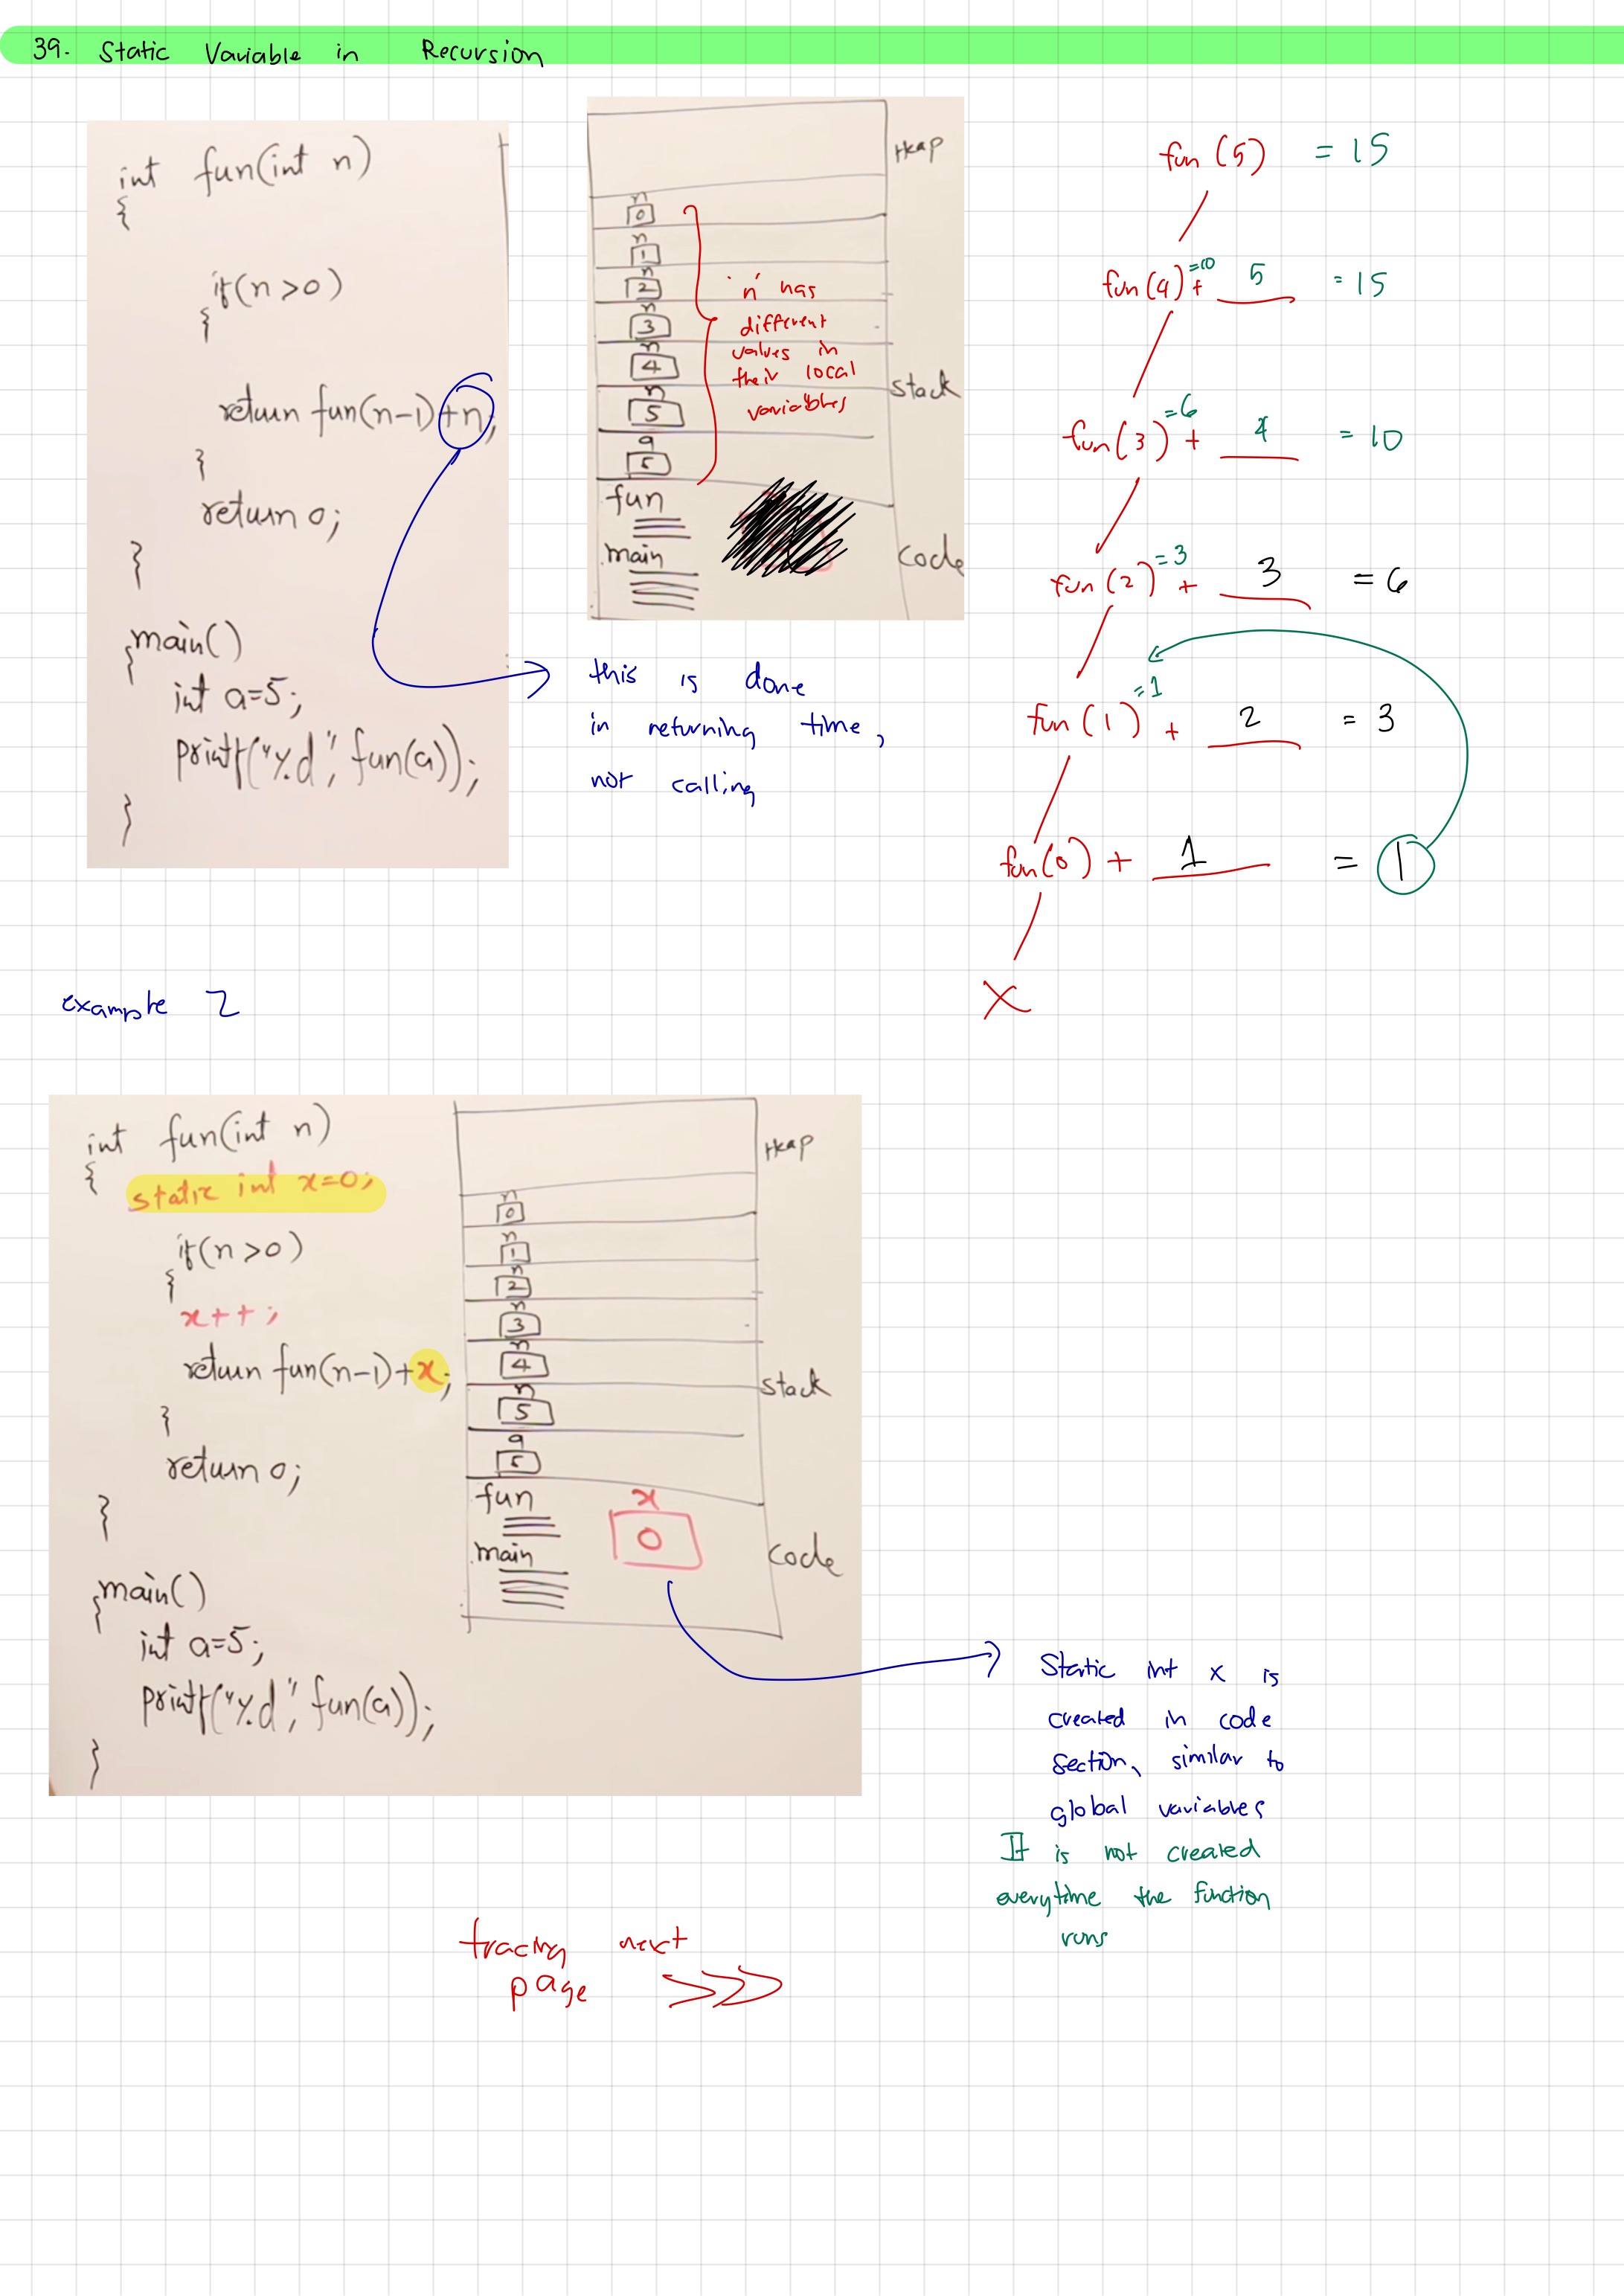 39. Static Variable in Recursion
int fun(int n)
{
if(n>0)
{
return fun(n-1)+n;
}
return 0;
}
main()
{
int a=5;
printf("%d", fun(a));
}
Heap
n
0
n
1
n
2
n
3
n
4
n
5
a
5
stack
fun
main
code
'n' has
different
values in
their local
variables
this is done
in returning time,
not calling
fun (5) = 15
fun(4) =10 + 5 = 15
fun(3) =6 + 4 = 10
fun(2) =3 + 3 = 6
fun(1) =1 + 2 = 3
fun(0) + 1 = 1
X
example 2
int fun(int n)
{
static int x=0;
if(n>0)
{
x++;
return fun(n-1)+x;
}
return 0;
}
main()
{
int a=5;
printf("%d", fun(a));
}
Heap
n
0
n
1
n
2
n
3
n
4
n
5
a
5
stack
fun
x
0
main
code
Static int x is
created in code
section, similar to
global variables
It is not created
everytime the function
runs
tracing next
page >>>